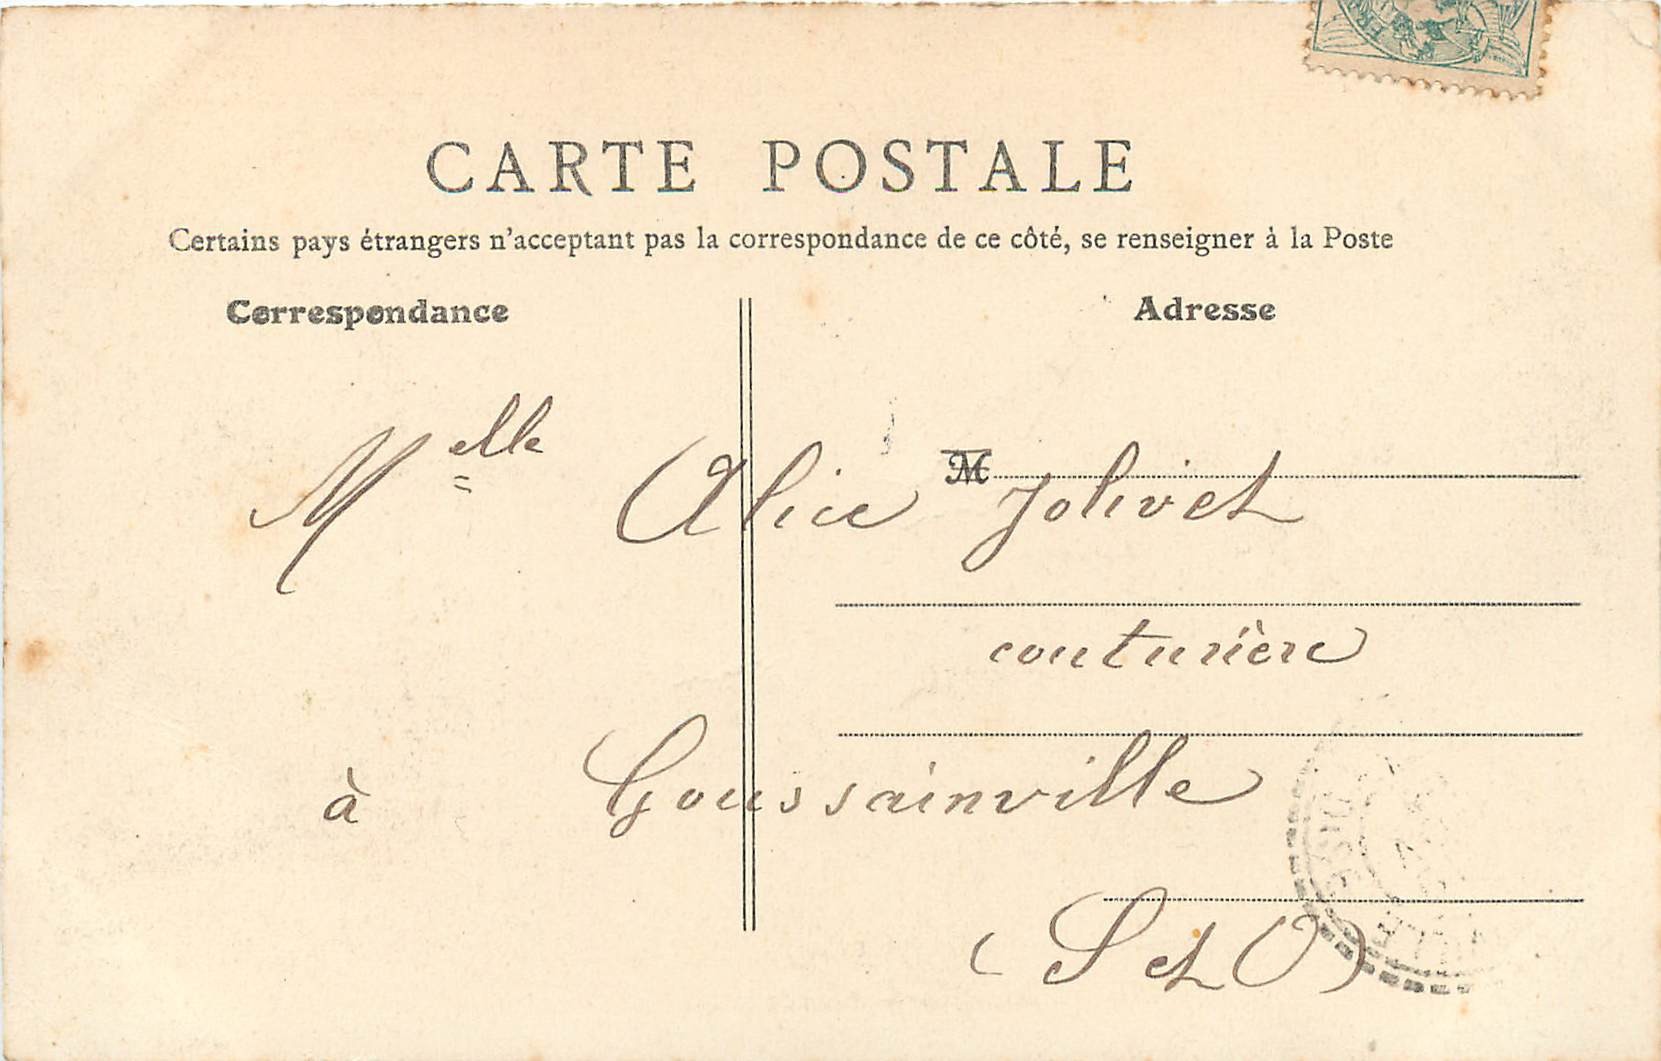 CARTE POSTALE
Certains pays étrangers n'acceptant pas la correspondance de ce côté, se renseigner à la Poste
Correspondance
Adresse
M
Melle Alice Jolivet
couturière
à Goussainville
(S et O)